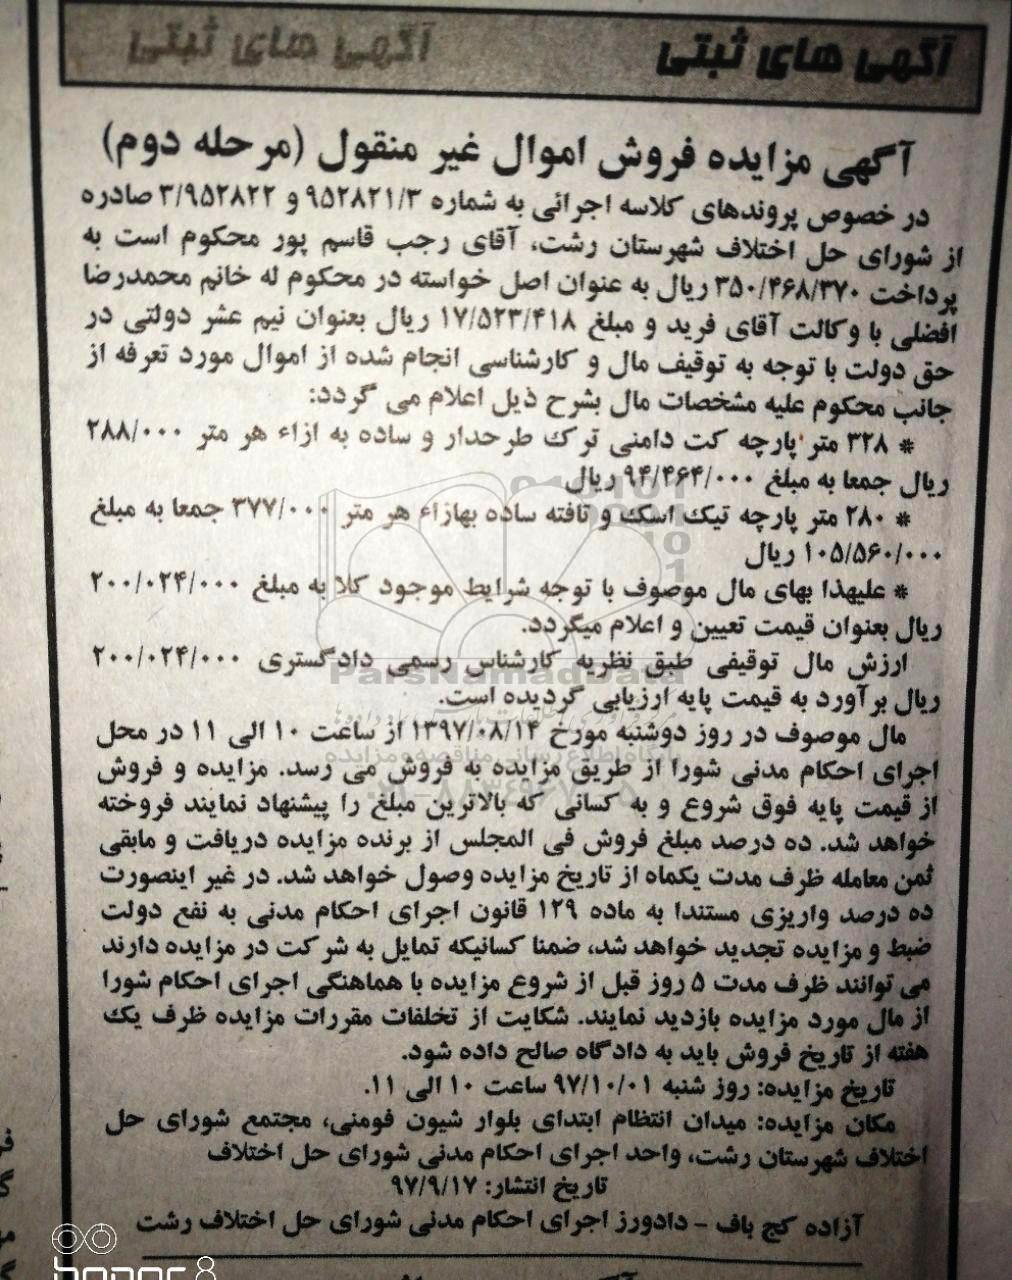 آگهی های ثبتی
آگهی های ثبتی
آگهی مزایده فروش اموال غیر منقول (مرحله دوم)
در خصوص پروندهای کلاسه اجرائی به شماره ۹۵۲۸۲۱/۳ و ۳/۹۵۲۸۲۲ صادره
از شورای حل اختلاف شهرستان رشت، آقای رجب قاسم پور محکوم است به
پرداخت ۳۵۰/۴۶۸/۳۷۰ ریال به عنوان اصل خواسته در محکوم له خانم محمدرضا
افضلی با وکالت آقای فرید و مبلغ ۱۷/۵۲۳/۴۱۸ ریال بعنوان نیم عشر دولتی در
حق دولت با توجه به توقیف مال و کارشناسی انجام شده از اموال مورد تعرفه از
جانب محکوم علیه مشخصات مال بشرح ذیل اعلام می گردد:
* ۳۲۸ متر پارچه کت دامنی ترک طرحدار و ساده به ازاء هر متر ۲۸۸/۰۰۰
ریال جمعا به مبلغ ۹۴/۴۶۴/۰۰۰ ریال
* ۲۸۰ متر پارچه تیک اسک و تافته ساده بهازاء هر متر ۳۷۷/۰۰۰ جمعا به مبلغ
۱۰۵/۵۶۰/۰۰۰ ریال
* علیهذا بهای مال موصوف با توجه شرایط موجود کلا به مبلغ ۲۰۰/۰۲۴/۰۰۰
ریال بعنوان قیمت تعیین و اعلام میگردد.
ارزش مال توقیفی طبق نظریه کارشناس رسمی دادگستری ۲۰۰/۰۲۴/۰۰۰
ParsNamadData
ریال برآورد به قیمت پایه ارزیابی گردیده است.
مال موصوف در روز دوشنبه مورخ ۱۳۹۷/۰۸/۱۴ از ساعت ۱۰ الی ۱۱ در محل
پایگاه اطلاع رسانی مناقصه و مزایده
اجرای احکام مدنی شورا از طریق مزایده به فروش می رسد. مزایده و فروش
از قیمت پایه فوق شروع و به کسانی که بالاترین مبلغ را پیشنهاد نمایند فروخته
خواهد شد. ده درصد مبلغ فروش فی المجلس از برنده مزایده دریافت و مابقی
ثمن معامله ظرف مدت یکماه از تاریخ مزایده وصول خواهد شد. در غیر اینصورت
ده درصد واریزی مستندا به ماده ۱۲۹ قانون اجرای احکام مدنی به نفع دولت
ضبط و مزایده تجدید خواهد شد، ضمنا کسانیکه تمایل به شرکت در مزایده دارند
می توانند ظرف مدت ۵ روز قبل از شروع مزایده با هماهنگی اجرای احکام شورا
از مال مورد مزایده بازدید نمایند. شکایت از تخلفات مقررات مزایده ظرف یک
هفته از تاریخ فروش باید به دادگاه صالح داده شود.
تاریخ مزایده: روز شنبه ۹۷/۱۰/۰۱ ساعت ۱۰ الی ۱۱.
مکان مزایده: میدان انتظام ابتدای بلوار شیون فومنی، مجتمع شورای حل
اختلاف شهرستان رشت، واحد اجرای احکام مدنی شورای حل اختلاف
تاریخ انتشار: ۹۷/۹/۱۷
آزاده کج باف - دادورز اجرای احکام مدنی شورای حل اختلاف رشت